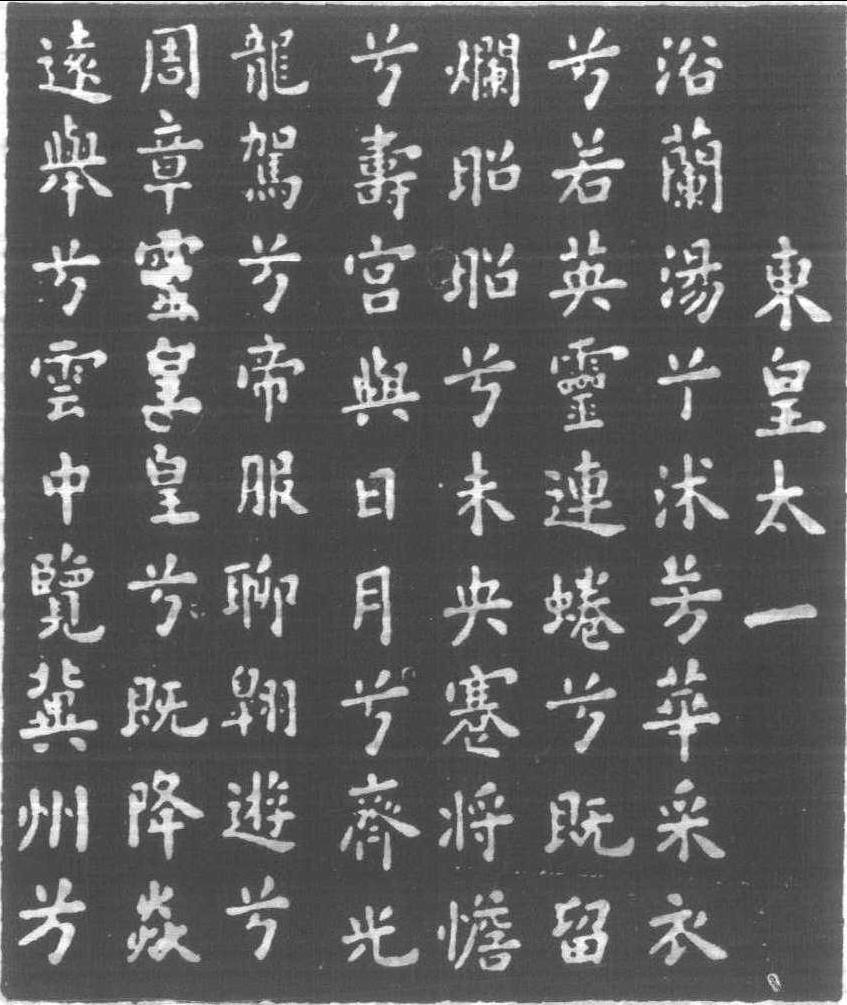 東皇太一
浴蘭湯兮沭芳華采衣
兮若英靈連蜷兮既留
爛昭昭兮未央蹇將憺
兮壽宮與日月兮齊光
龍駕兮帝服聊翱遊兮
周章靈皇皇兮既降猋
遠舉兮雲中覽冀州兮